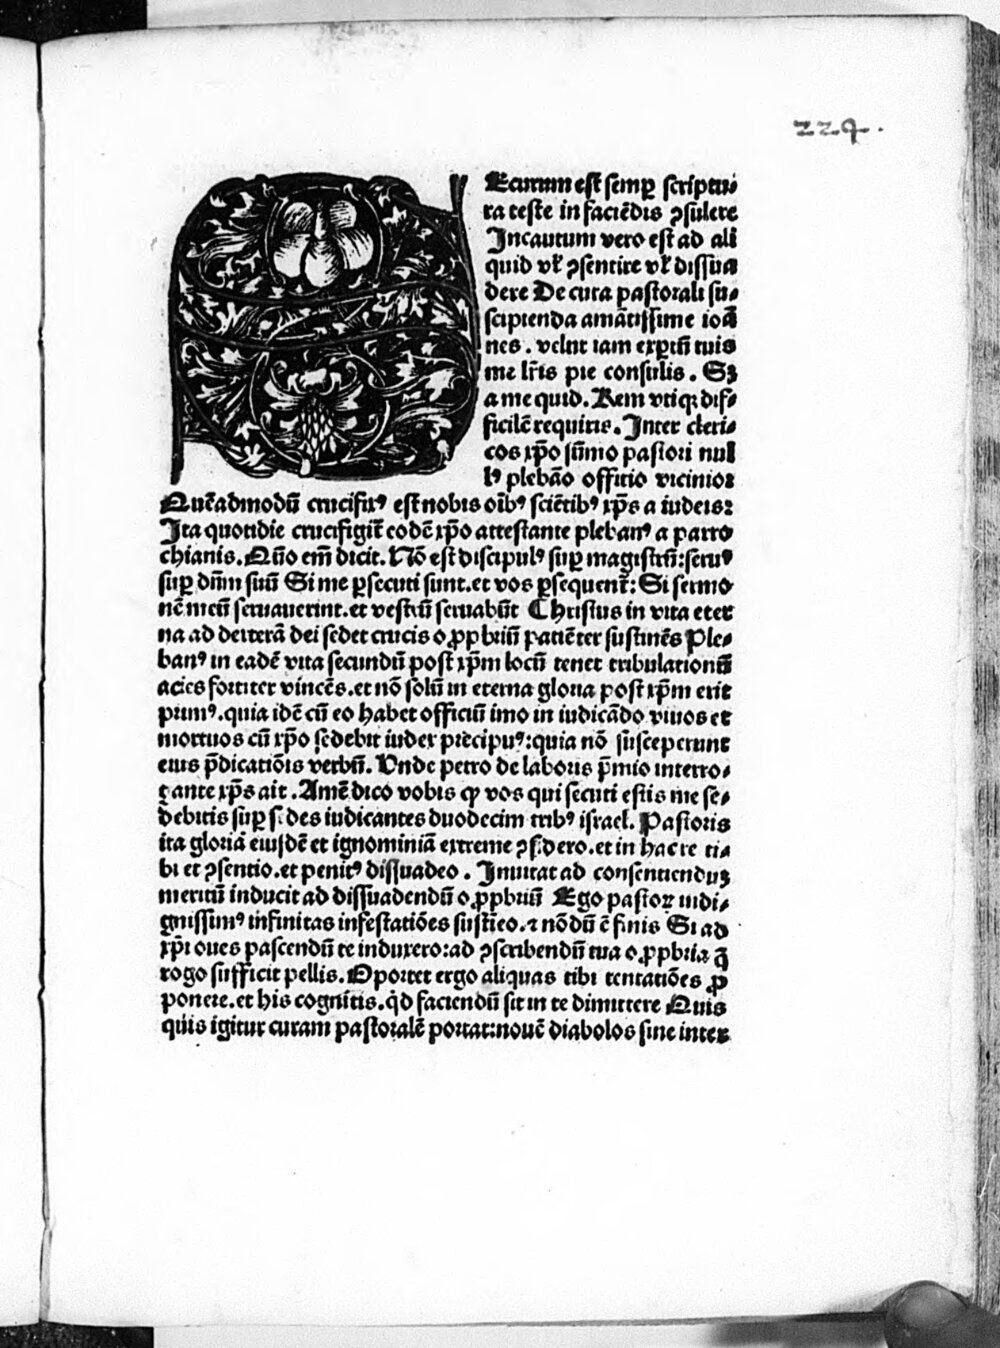 224.
Ecurum est semꝑ scriptu⸗
ra teste in faciēdis ꝯsulere
Incautum vero est ad ali
quid vꝉ ꝯsentire vꝉ dissua
dere De cura pastorali su⸗
scipienda amātissime ioā
nes. velut iam exꝑtū tuis
me lr̄is pie consulis. Sꝫ
a me quid. Rem vtiqꝫ dif⸗
ficilē requiris. Inter cleri⸗
cos xp̄o sūmo pastori nul
lꝰ plebāo offitio vicinior
Quēadmodū crucifixꝰ est nobis oībꝰ sciētibꝰ xp̄s a iudeis:
Ita quotidie crucifigit᷑ eodē xp̄o attestante plebanꝰ a parro
chianis. Qūo em̄ dicit. Nō est discipulꝰ suꝑ magistrū: seruꝰ
suꝑ dn̄m suū Si me ꝑsecuti sunt. et vos ꝑsequent᷑: Si sermo
nē meū seruauerint. et vestrū seruabūt Christus in vita eter
na ad dexterā dei sedet crucis oꝓpbriū patiēter sustinēs Ple⸗
banꝰ in eadē vita secundū post xp̄m locū tenet tribulationū
acies fortiter vincēs. et nō solū in eterna gloria post xp̄m erit
primꝰ. quia idē cū eo habet officiū imo in iudicādo viuos et
mortuos cū xp̄o sedebit iudex precipuꝰ: quia nō susceperunt
eius p̄dicatiōis verbū. Unde petro de laboris p̄mio interro⸗
gante xp̄s ait. Amē dico vobis ꝙ vos qui secuti estis me se⸗
debitis suꝑ sedes iudicantes duodecim tribꝰ israel. Pastoris
ita gloriā eiusdē et ignominiā extreme ꝯsidero. et in hac re ti⸗
bi et ꝯsentio. et penitꝰ dissuadeo. Inuitat ad consentienduꝫ
meritū inducit ad dissuadendū oꝓpbriū Ego pastor indi⸗
gnissimꝰ infinitas infestatiōes sustīeo. ⁊ nōdū ē finis Si ad
xp̄i oues pascendū te induxero: ad ꝯscribendū tua oꝓpbria q̄
rogo sufficit pellis. Oportet ergo aliquas tibi tentatiōes ꝓ
ponere. et his cognitis. q̇d faciendū sit in te dimittere Quis
quis igitur curam pastoralē portat: nouē diabolos sine inter